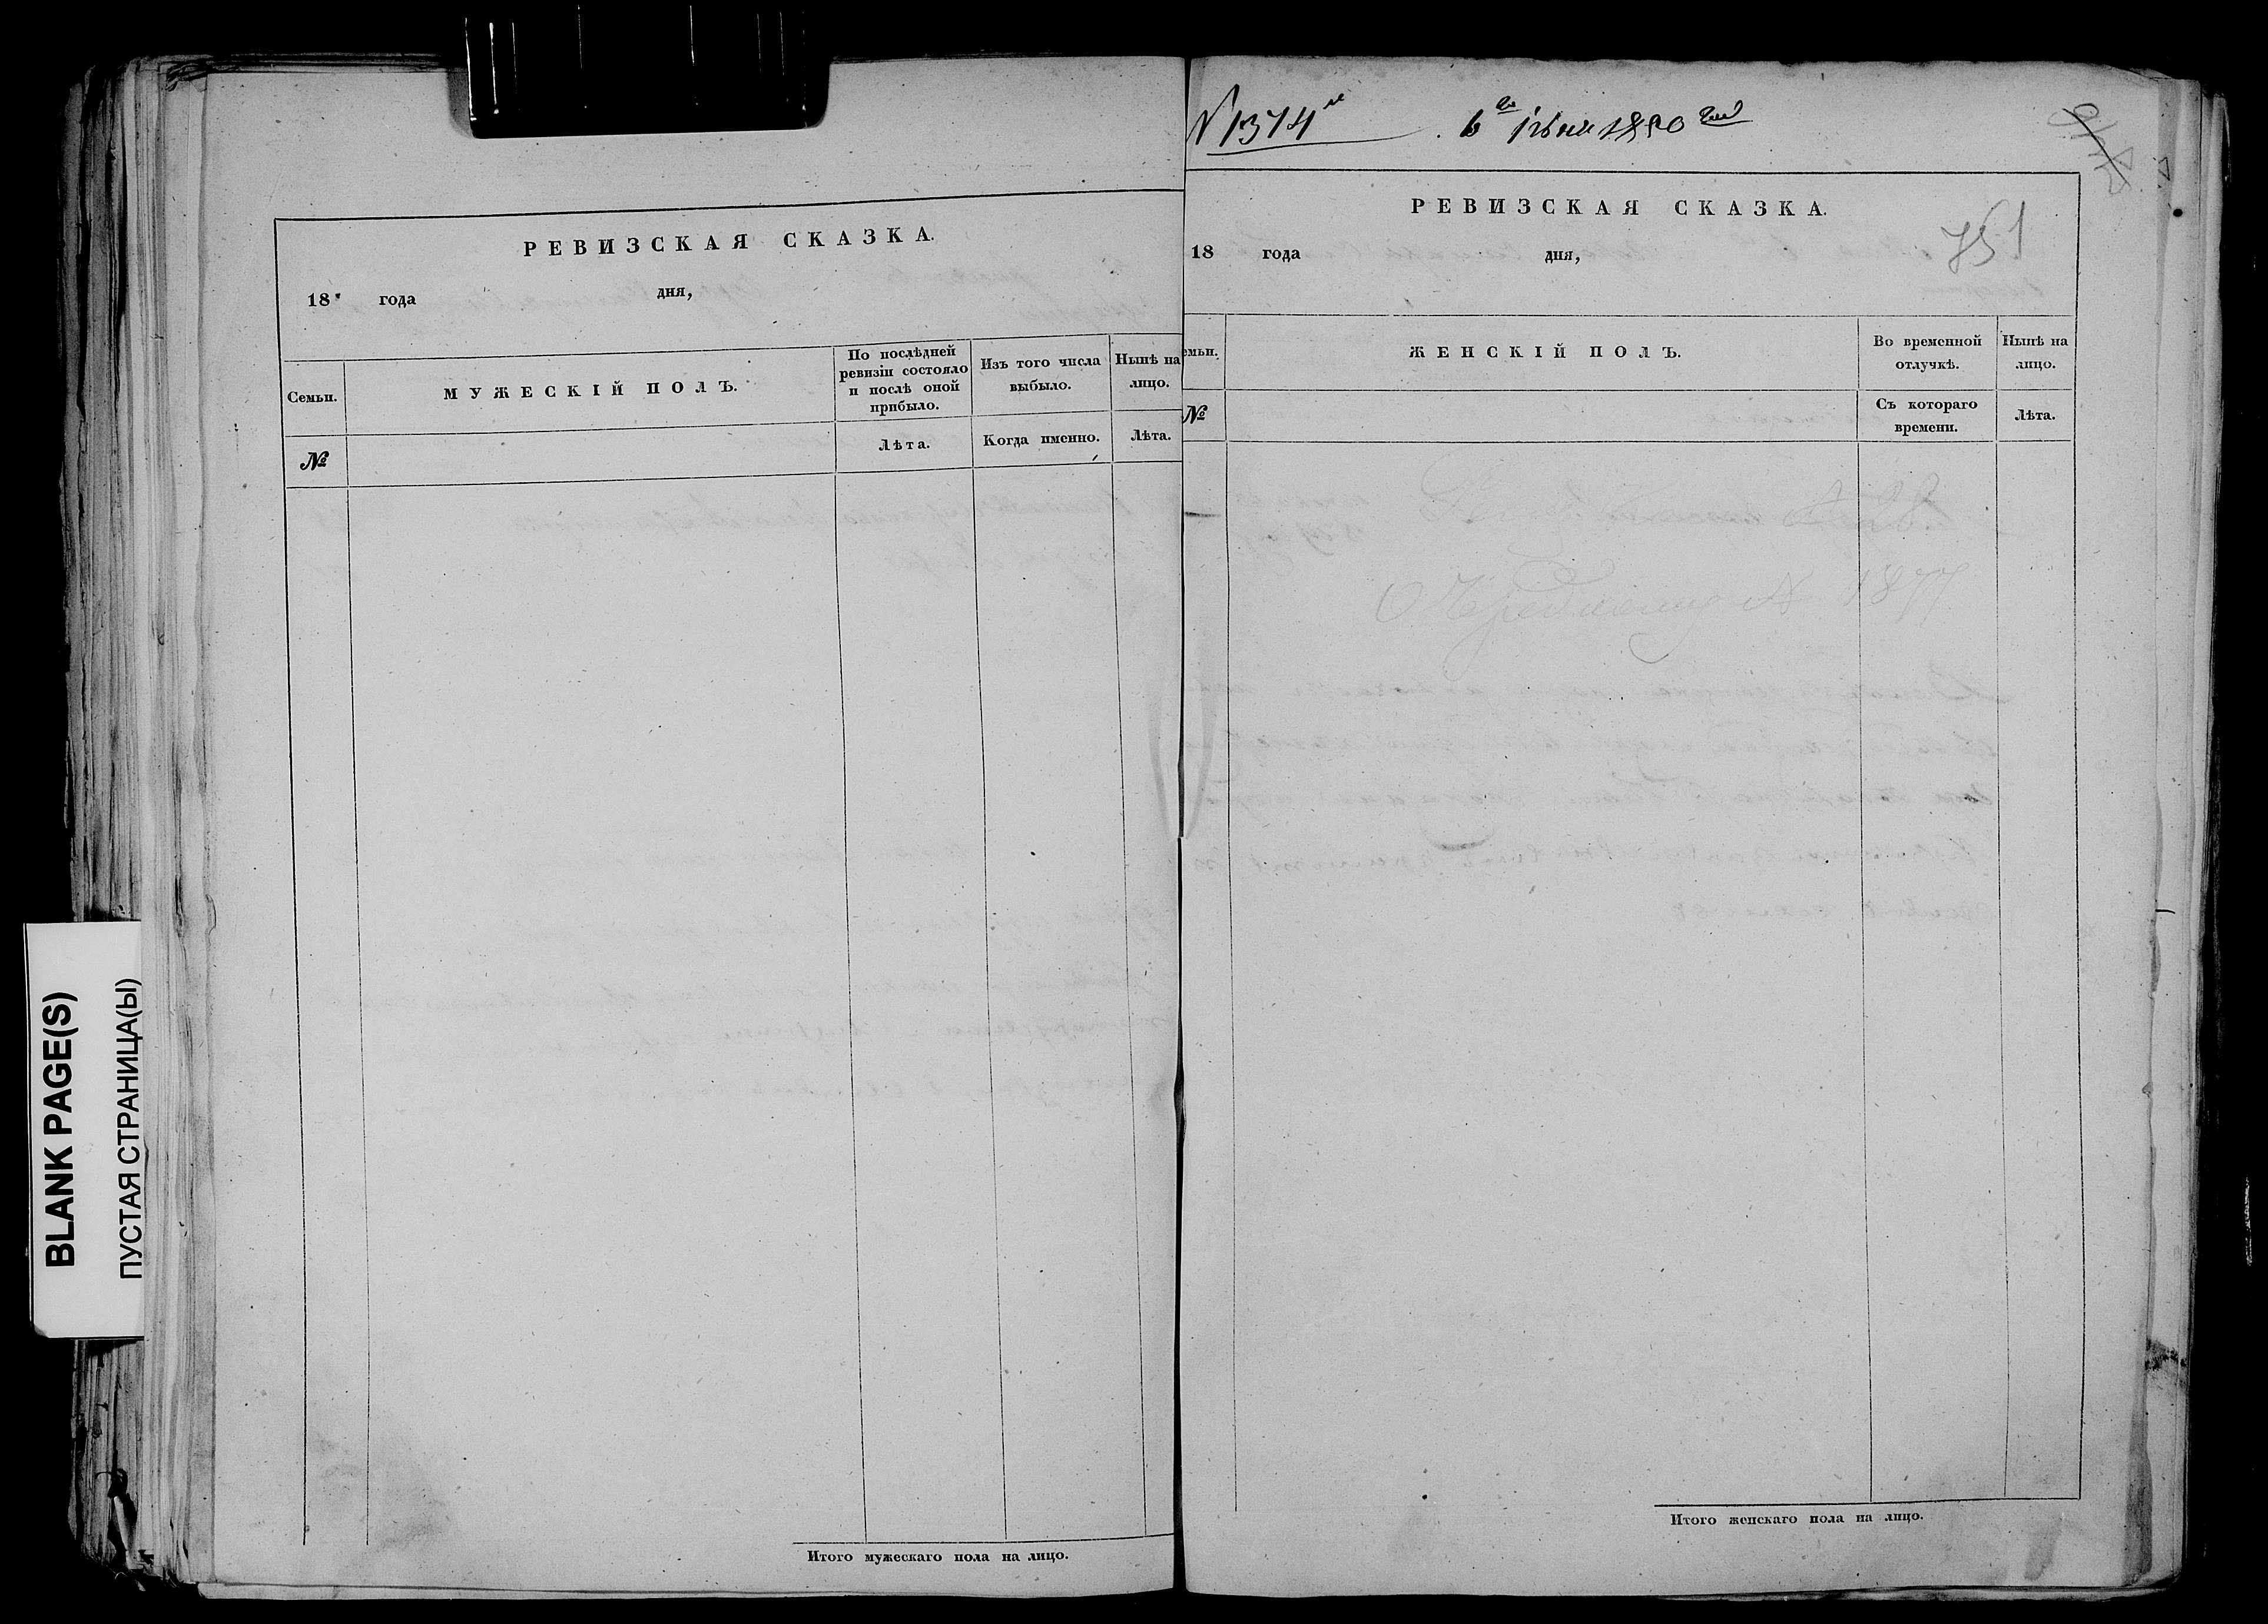 РЕВИЗСКАЯ СКАЗКА.
18 года дня,
Семьи.
МУЖЕСКІЙ ПОЛЪ.
По послѣдней
ревизіи состояло
и послѣ оной
прибыло.
Изъ того числа
выбыло.
Нынѣ на
лицо.
№
Лѣта.
Когда именно.
Лѣта.
Итого мужескаго пола на лицо.
BLANK PAGE(S)
ПУСТАЯ СТРАНИЦА(Ы)
N 1374
1850
РЕВИЗСКАЯ СКАЗКА.
751
18 года дня,
емьи.
ЖЕНСКІЙ ПОЛЪ.
Во временной
отлучкѣ.
Нынѣ на
лицо.
№
Съ котораго
времени.
Лѣта.
N 1877
Итого женскаго пола на лицо.